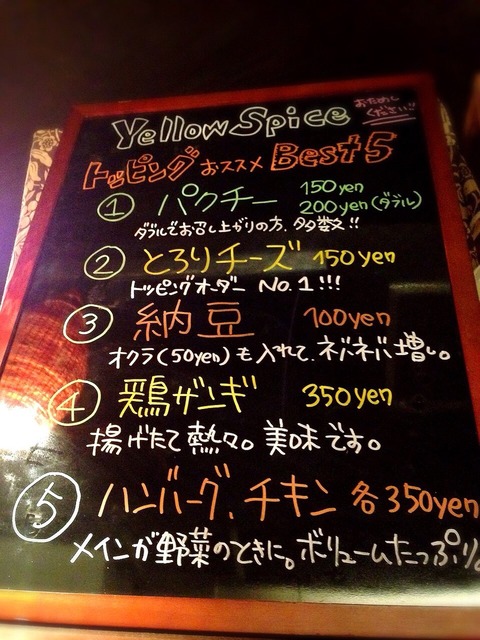 Yellow Spice
おためしください!!
トッピングおススメ Best 5
① パクチー 150yen
200yen(ダブル)
ダブルでお召し上がりの方、多数!!
② とろりチーズ 150yen
トッピングオーダー No.1!!!
③ 納豆 100yen
オクラ(50yen)も入れて、ネバネバ増し。
④ 鶏ザンギ 350yen
揚げたて熱々。美味です。
⑤ ハンバーグ、チキン 各350yen
メインが野菜のときに。ボリュームたっぷり。